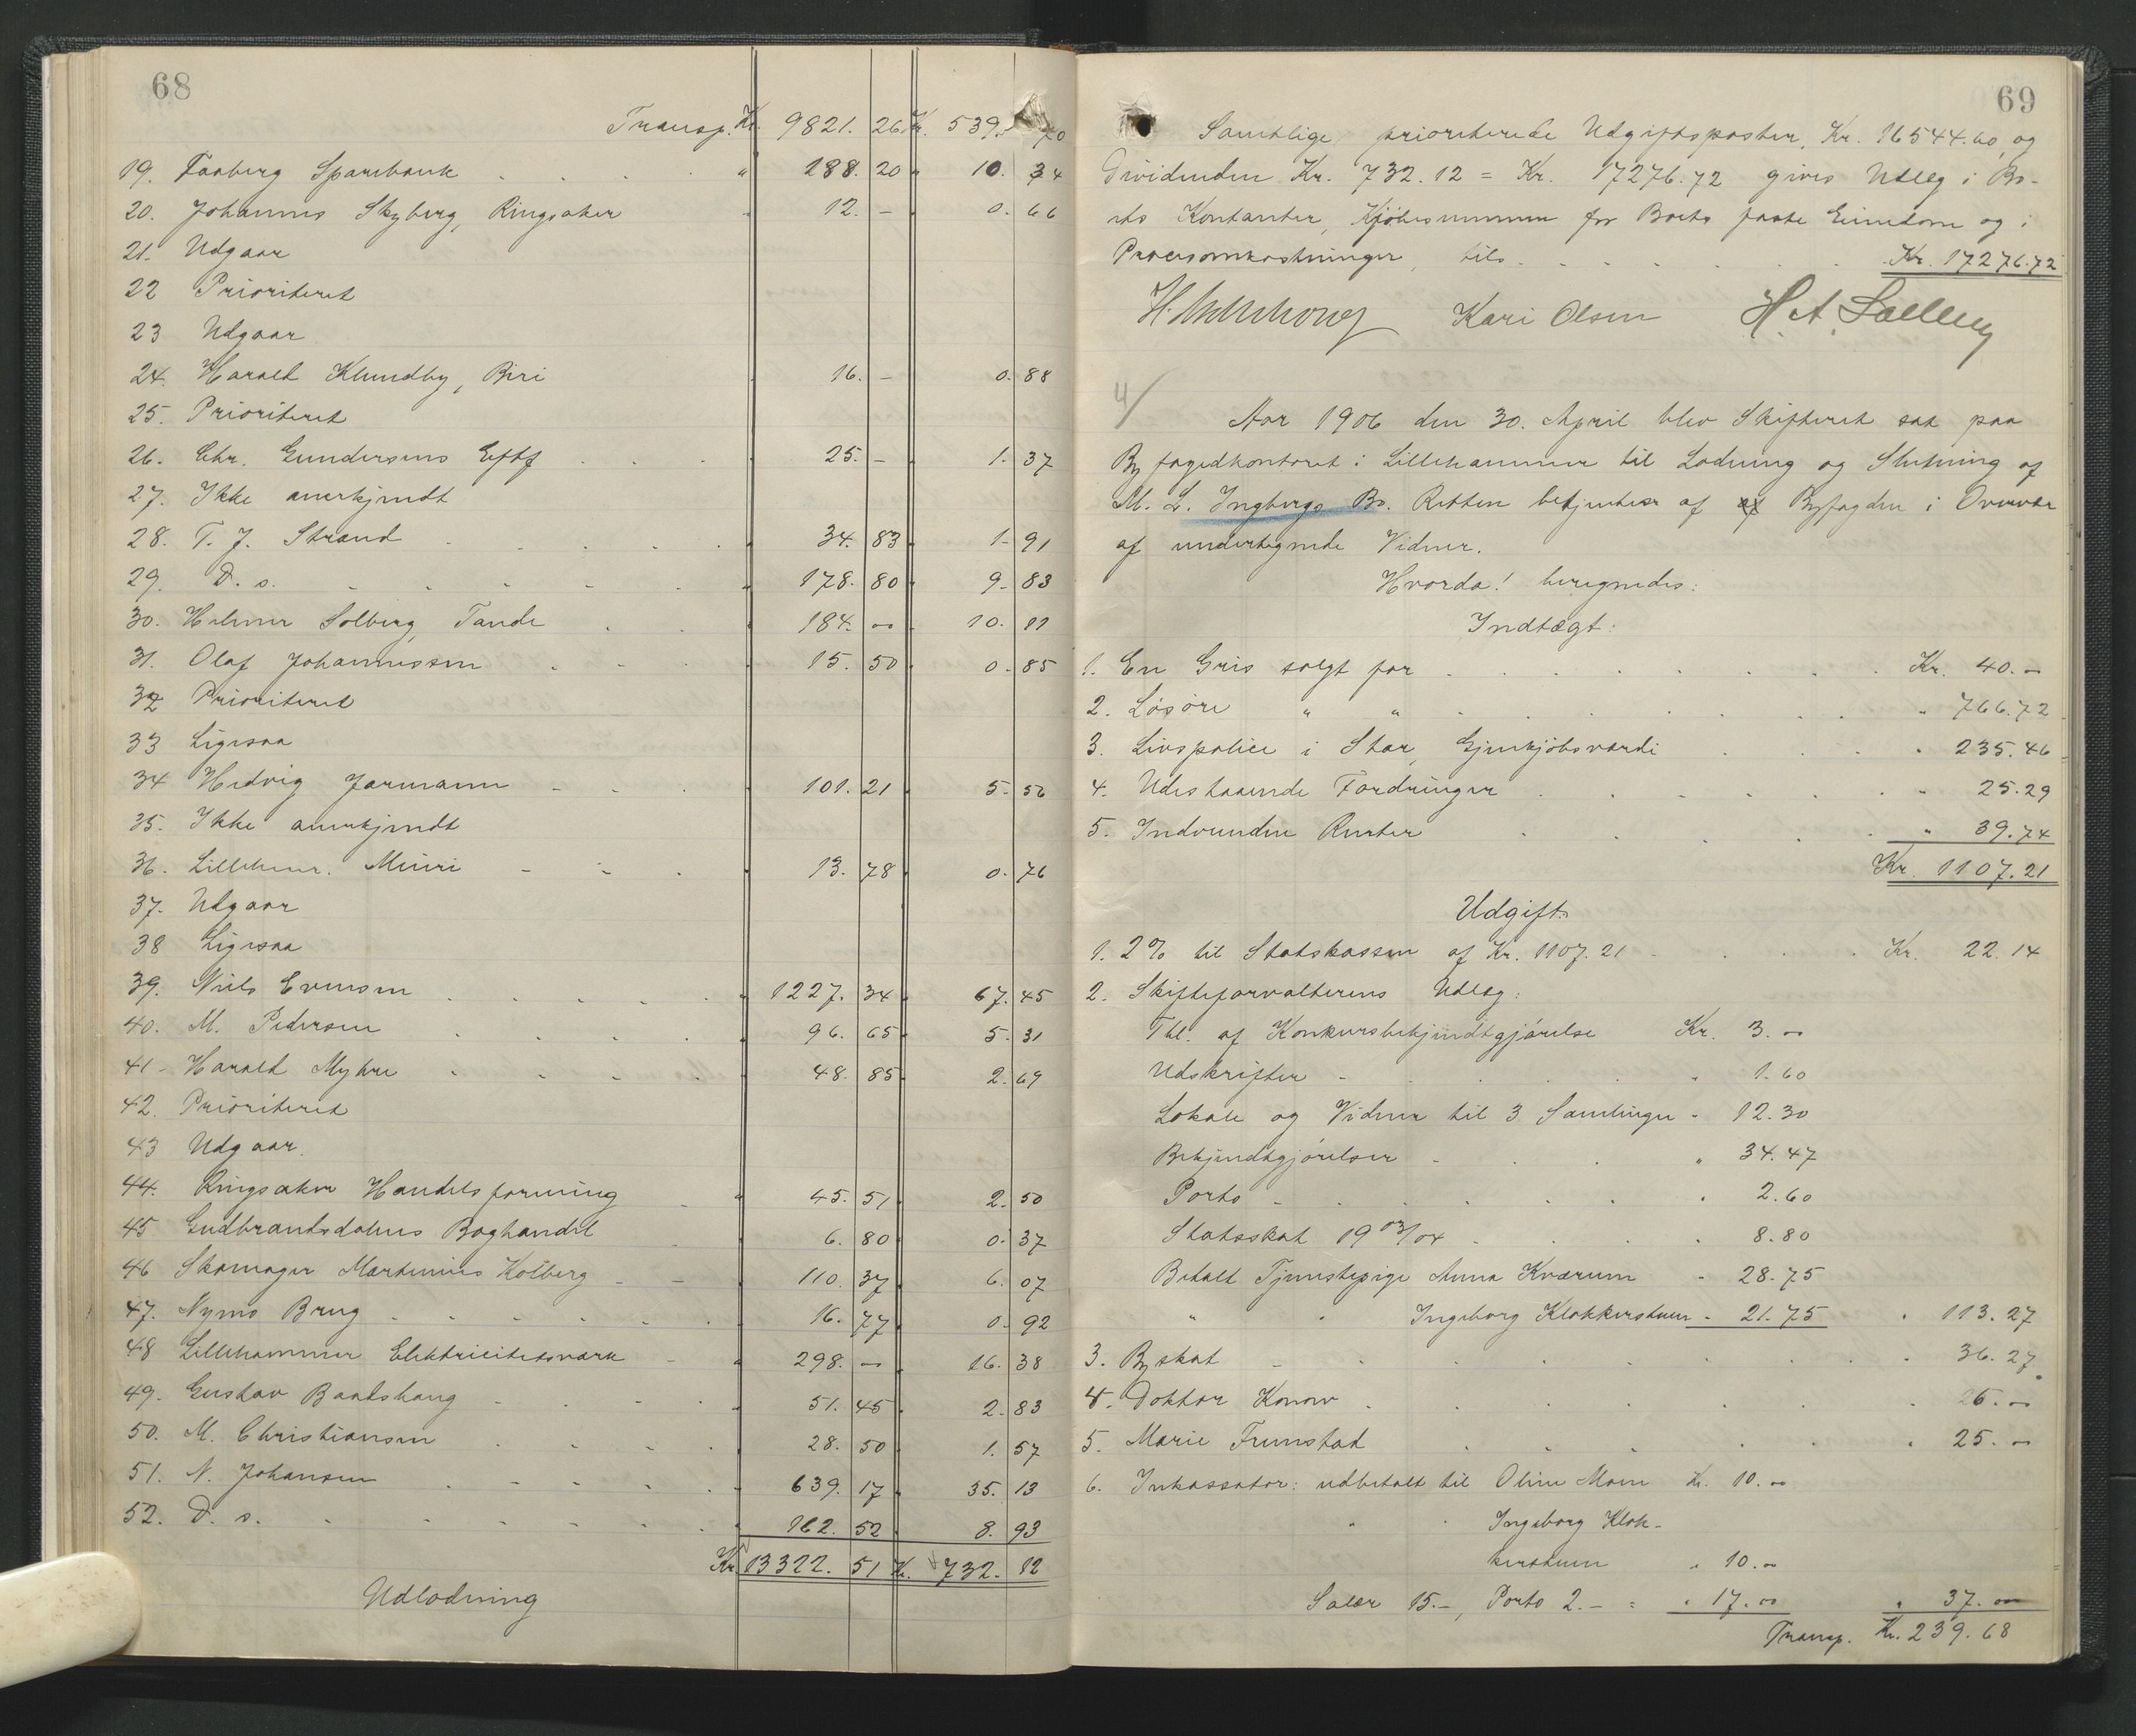 68
Transp. Kr. 9821. 26 Kr. 539. 70
19. Faaberg Sparebank " 188. 20 10. 34
20. Johannes Skyberg, Ringsaker 12. – 0. 66
21. Udgaar
22 Prioriteret
23 Udgaar
24. Harald Klundby, Biri 16. – 0. 88
25. Prioriteret
26. Chr. Gundersens Eftf 25. – 1. 37
27. Ikke anerkjendt
28. T. J. Strand 34. 83 1. 91
29. D. s. 178. 80 9. 83
30. Helmer Solberg, Tande 184. 00 10. 11
31. Olaf Johannessen 15. 50 0. 85
32 Prioriteret
33 Ligesaa
34 Hedvig Jarmann 101. 21 5. 56
35. Ikke anerkjendt
36. Lillehmr. Meieri 13. 78 0. 76
37. Udgaar
38 Ligesaa
39. Niels Evensen 1227. 34 67. 45
40. M. Pedersen 96. 65 5. 31
41. Harald Myhre 48. 85 2. 69
42. Prioriteret
43 Udgaar.
44. Ringsaker Handelsforening 45. 51 2. 50
45 Gudbrandsdalens Boghandel 6. 80 0. 37
46 Skomager Martinius Kolberg 110. 37 6. 07
47. Nymo Brug 16. 77 0. 92
48 Lillehammer Elektricitetsværk 298. 00 16. 38
49. Gustav Baadshaug 51. 45 2. 83
50. M. Christiansen 28. 50 1. 57
51. N. Johansen 639. 17 35. 13
52. D. s. 162. 52 8. 93
Kr. 13322. 51 Kr. 732. 12
Udlodning
69
Samtlige prioriterede Udgiftsposter, Kr. 16544.60, og
Dividenden Kr. 732.12 = Kr. 17276.72 gives Udlæg i Bo-
ets Kontanter, Kjøbesummen for Boets faste Eiendom og i
Procesomkostninger, tils. Kr. 17276.72
Kari Olsen H. A. Sælleg
4/
Aar 1906 den 30. April blev Skifteret sat paa
Byfogedkontoret i Lillehammer til Lodning og Slutning af
M. L. Ingbergs Bo. Retten betjentes af af Byfogden i Overvær
af undertegnede Vidner.
Hvorda! beregnedes:
Indtægt:
1. En Gris solgt for Kr. 40.00
2. Løsøre " " " 766.72
3. Livspolice i Star, Gjenkjøbsværdi " 235.46
4. Udestaaende Fordringer " 25.29
5. Indvundne Renter " 39.74
Kr. 1107.21
Udgift:
1. 2% til Statskassen af Kr. 1107.21 Kr. 22.14
2. Skifteforvalterens Udlæg:
Tbl. af Konkursbekjendtgjørelse Kr. 3.00
Udskrifter " 1.60
Lokale og Vidner til 3 Samlinger " 12.30
Bekjendtgjørelser " 34.47
Porto " 2.60
Statsskat 1903/04 " 8.80
Betalt Tjenestepige Anna Kværum " 28.75
" " Ingeborg Klokkerstuen " 21.75 " 113.27
3. Byskat " 36.27
4. Doktor Konow " 26.00
5. Marie Frunstad " 25.00
6. Inkassator: udbetalt til Oline Moen Kr. 10.00
" " Ingeborg Klok-
kerstuen " 10.00
Salær 15.–, Porto 2.– = " 17.00 " 37.00
Transp. Kr. 239.68